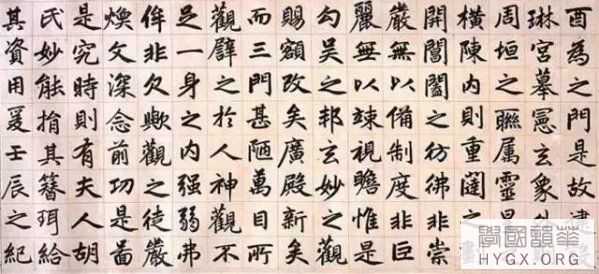 酉為之門是故建
琳宮摹憲玄象外
周垣之聯屬靈星
橫陳內則重闥之
開閶闔之彷彿非崇
嚴無以備制度非巨
麗無以竦視瞻惟是
勾吳之邦玄妙之觀
賜額改矣廣殿新矣
而三門甚陋萬目所
觀譬之於人神觀不
足一身之內强弱弗
侔非欠歟觀之徒嚴
煥文深念前功是啚
是究時則有夫人胡
氏妙能捐其簪珥給
其資用爰壬辰之紀
學國韻華
HYGX.ORG